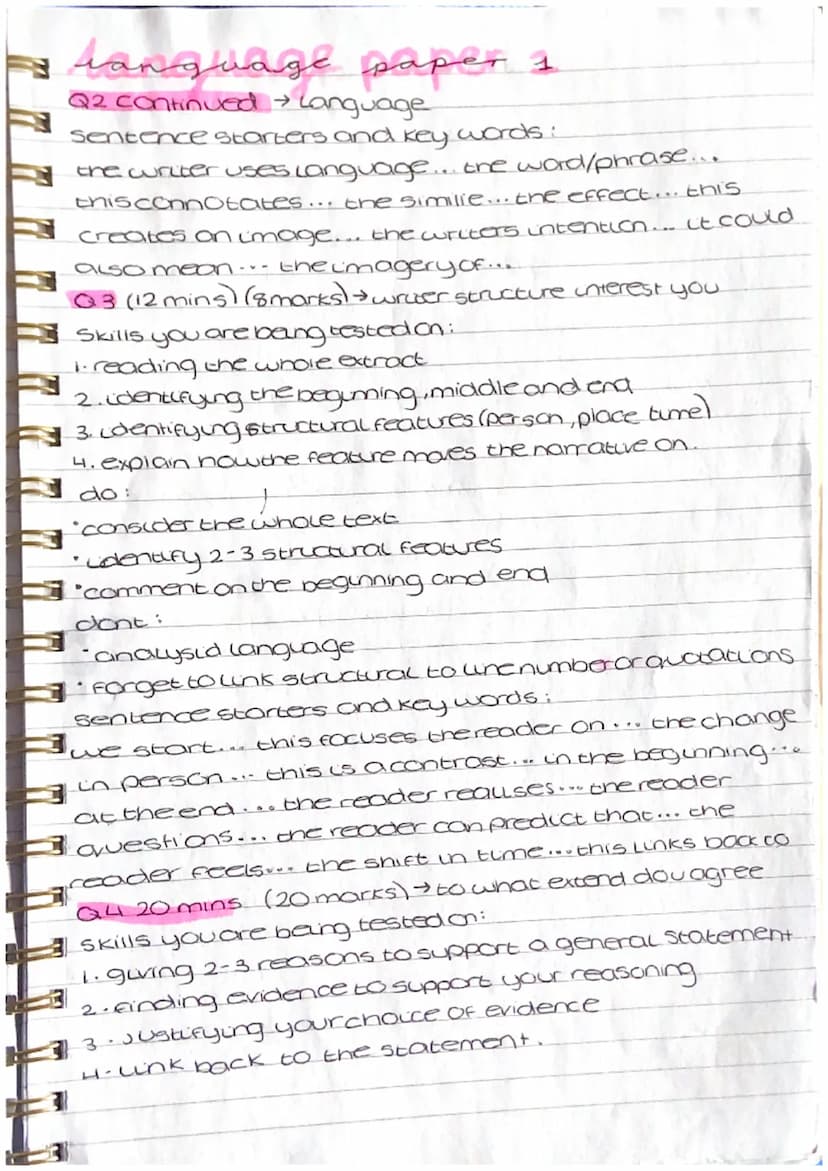 language paper 1
Q2 continued → Language
sentence starters and key words:
the writer uses language... the word/phrase...
this connotates... the similie... the effect... this
creates an image... the writers intention... it could
also mean... the imagery of...
Q3 (12 mins) (8 marks) → writer structure interest you
Skills you are being tested on:
1. reading the whole extract
2. identifying the beginning, middle and end
3. identifying structural features (person, place time)
4. explain how the feature moves the narrative on.
do:
· consider the whole text
· identify 2-3 structural features
· comment on the beginning and end
dont:
· analysid language
· forget to link structural to line number or quotations
sentence starters and key words:
we start... this focuses the reader on... the change
in person... this is a contrast... in the beginning...
at the end... the reader realises... the reader
questions... the reader can predict that... the
reader feels... the shift in time... this links back to
Q4 20 mins (20 marks) → to what extend do u agree
skills you are being tested on:
1. giving 2-3 reasons to support a general statement
2. finding evidence to support your reasoning
3. Justifying your choice of evidence
4. link back to the statement.